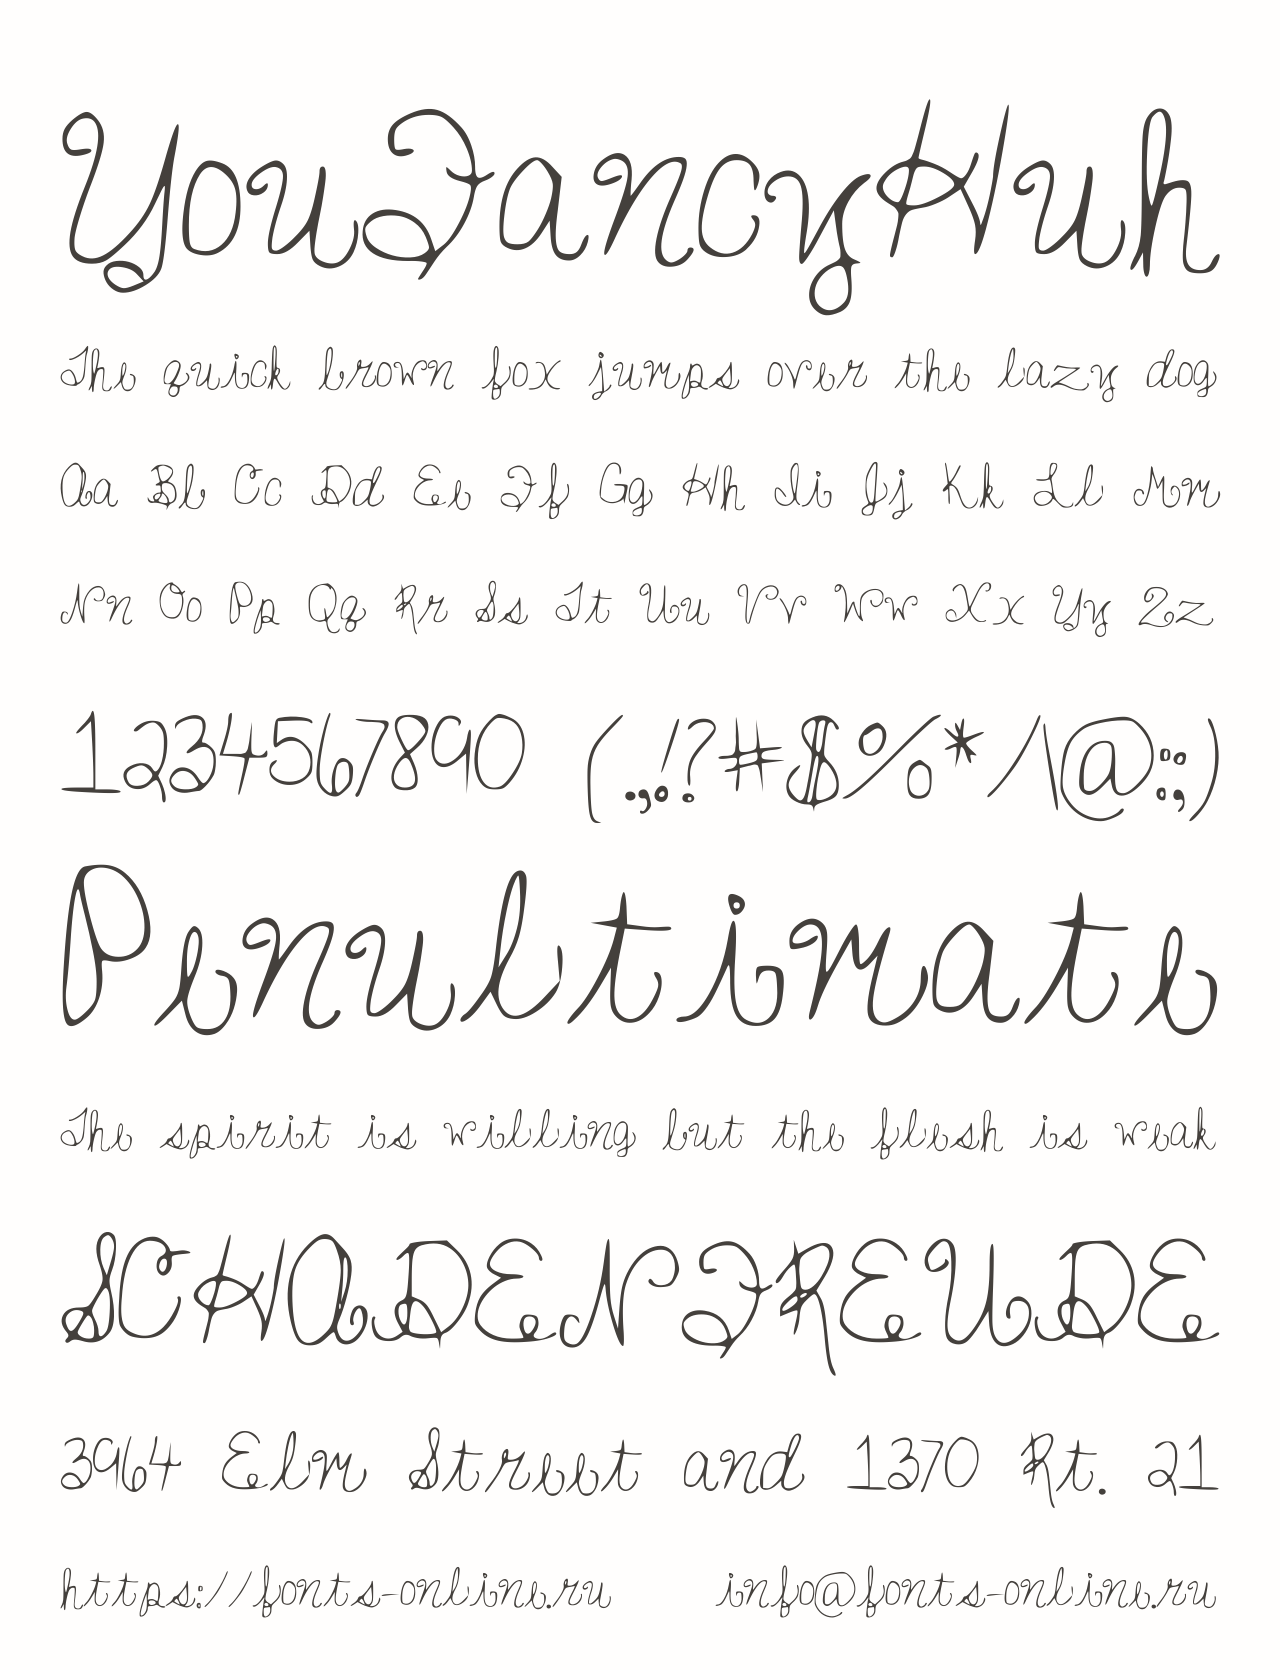 YouFancyHuh
The quick brown fox jumps over the lazy dog
Aa Bb Cc Dd Ee Ff Gg Hh Ii Jj Kk Ll Mm
Nn Oo Pp Qq Rr Ss Tt Uu Vv Ww Xx Yy Zz
1234567890 (.,!?#$%*/\@:;)
Penultimate
The spirit is willing but the flesh is weak
SCHADENFREUDE
3964 Elm Street and 1370 Rt. 21
https://fonts-online.ru info@fonts-online.ru